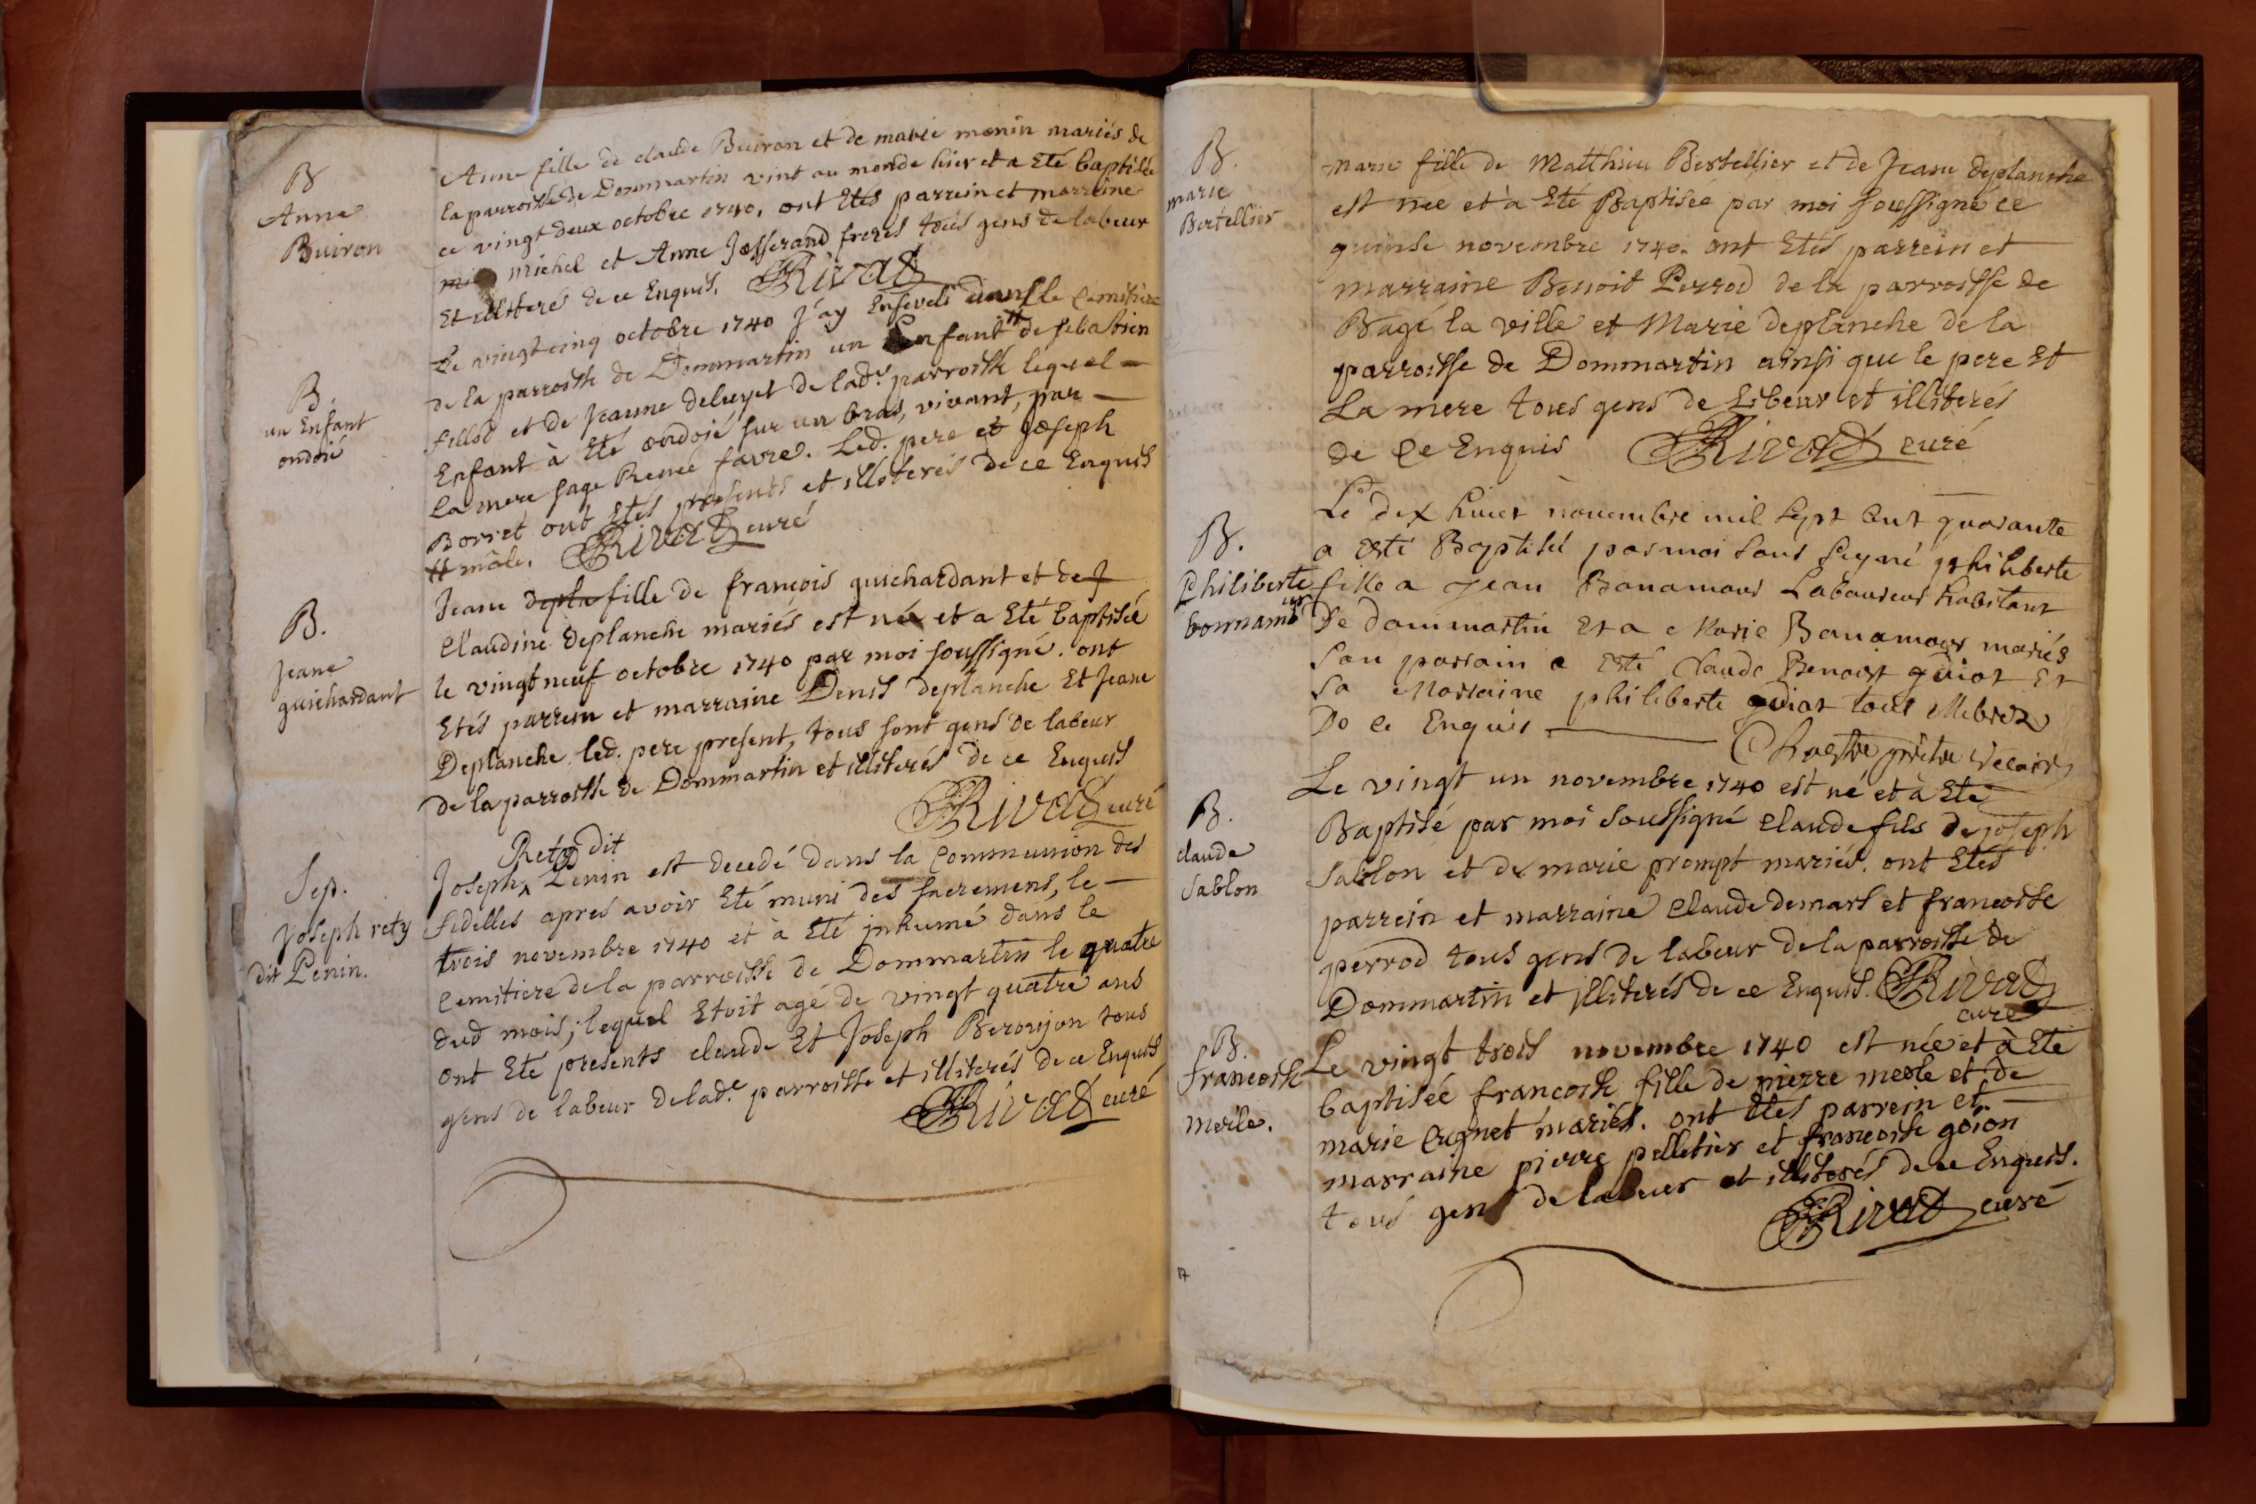 B
Anne
Buiron
Anne fille de claude Buiron et de marie monin mariés de
la parroisse de Dommartin vint au monde hier et a Eté baptisée
ce vingt deux octobre 1740, ont Etés parrein et marraine
michel et Anne Josserand freres tous gens de labeur
Et illiterés de ce Enquis. Rivat
B.
un Enfant
ondoié
Le vingt cinq octobre 1740 j'ay Enseveli dans le Cemitiere
de la parroisse de Dommartin un Enfant # de sebastien
fillod et de Jeanne deluyet de lad.e parroisse lequel
Enfant à Eté ondoié sur un bras, vivant, par
la mere sage Renée favre. Led. pere et Joseph
Borret ont Etés presents et illiterés de ce Enquis
# mâle. Rivat curé
B.
Jeane
guichardant
Jeane depla fille de françois guichardant et de J
Claudine deplanche mariés est née et a Eté baptisée
le vingt neuf octobre 1740 par moi soussigné. ont
Etés parrein et marraine Denis deplanche Et Jeane
Deplanche led. pere present, tous sont gens de labeur
de la parroisse de Dommartin et illiterés de ce Enquis
Rivat curé
Sep.
Joseph rety
dit Penin.
Rety dit
Joseph ^ Penin est decedé dans la Communion des
fidelles apres avoir Eté muni des sacremens, le
trois novembre 1740 et à Eté inhumé dans le
Cemitiere de la parroisse de Dommartin le quatre
dud mois; lequel Etoit agé de vingt quatre ans
ont Eté presents claude Et Joseph Beroujon tous
gens de labeur de lad.e parroisse et illiterés de ce Enquis
Rivat curé
B.
marie
Bertellier
marie fille de Matthieu Bertellier et de Jeane deplanche
est née et à Eté Baptisée par moi soussigné ce
quinse novembre 1740. ont Etés parrein et
marraine Benoit Perrod de la parroisse de
Bagé la ville et Marie deplanche de la
parroisse de Dommartin ainsi que le pere Et
La mere tous gens de Labeur et illiterés
de Ce Enquis Rivat curé
B.
Philiberte
bonnamour
Le dix huict novembre mil sept cent quarante
a esté Baptisé par moi sous signé philiberte
fille a Jean Bonamour Laboureur habitant
De dommartin Et a Marie Bonamour mariés
Son parrain a esté Claude Benoist guiot Et
Sa Marraine philiberte guiot tous illitrez
De ce Enquis prêtre vicaire
B.
claude
Sablon
Le vingt un novembre 1740 est né et à Eté
Baptisé par moi soussigné Claude fils de joseph
Sablon et de marie prompt mariés. ont Etés
parrein et marraine Claude demars et francoise
perrod tous gens de labeur de la parroisse de
Dommartin et illiterés de ce Enquis. Rivat
curé
B.
francoise
merle.
Le vingt trois novembre 1740 est née et à Eté
baptisée francoise fille de pierre merle et de
marie Cugnet mariés. ont Etés parrein et
marraine pierre pelletier et francoise goion
tous gens de labeur et illiterés de ce Enquis.
Rivat curé
17